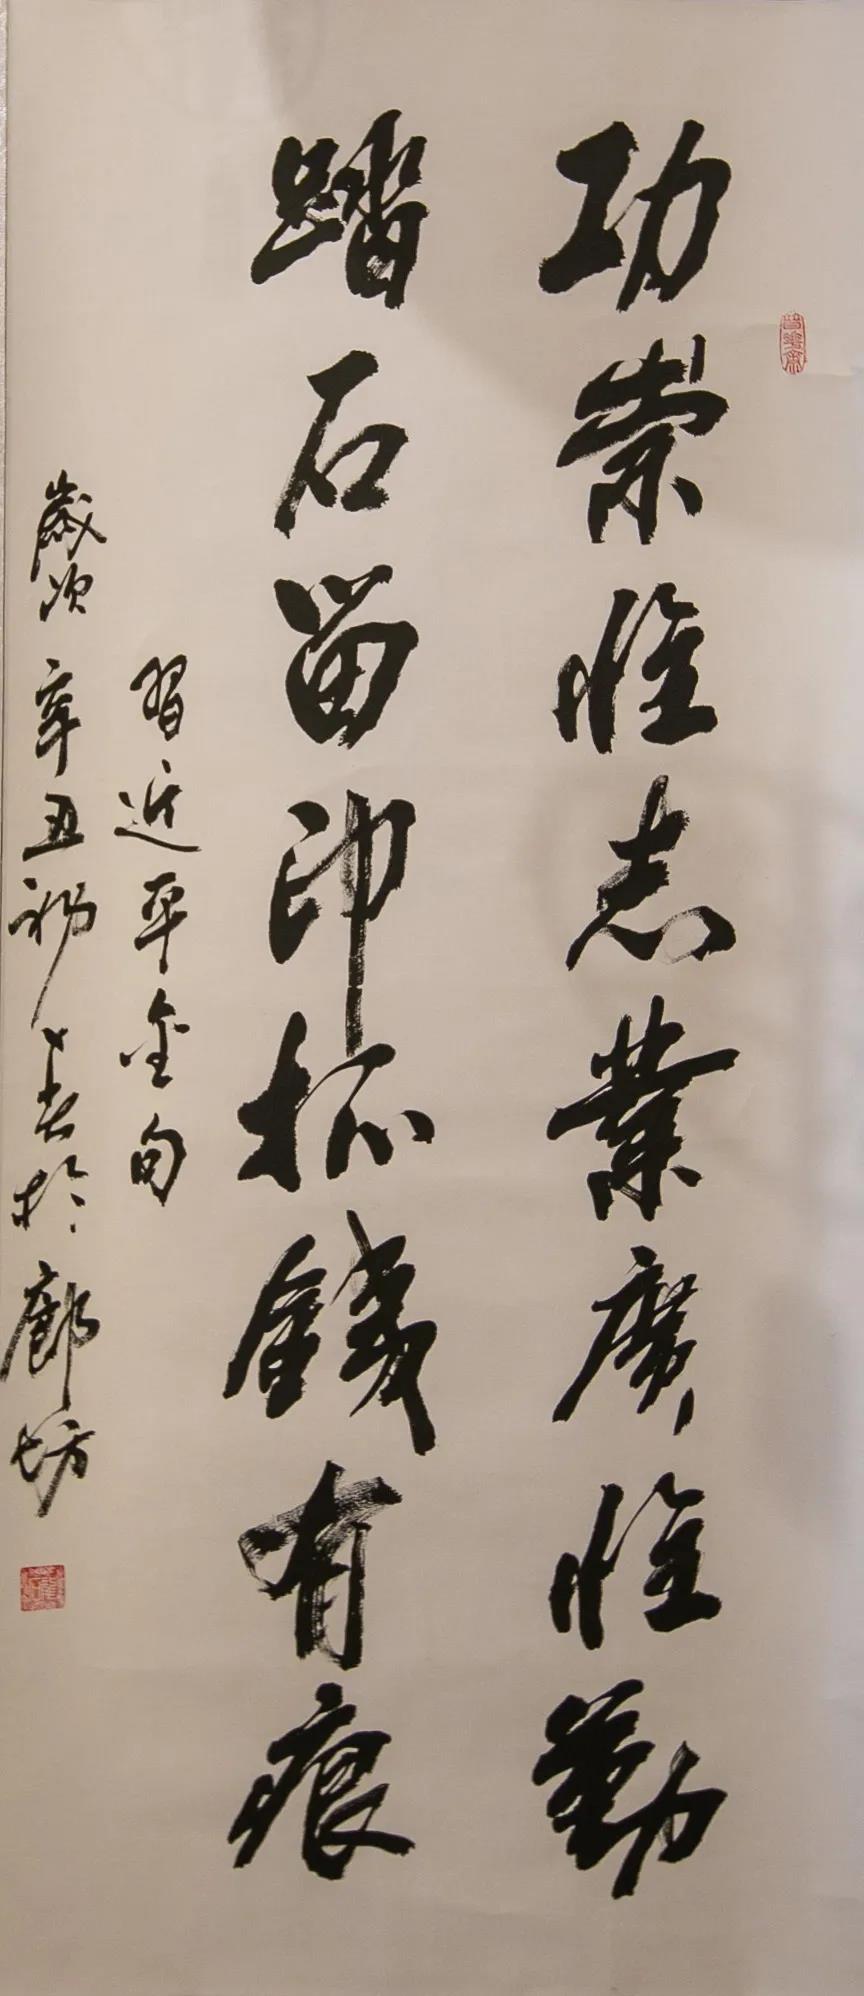 功崇惟志業廣惟勤
踏石留印抓鐵有痕
習近平金句
歲次辛丑初春於廊坊